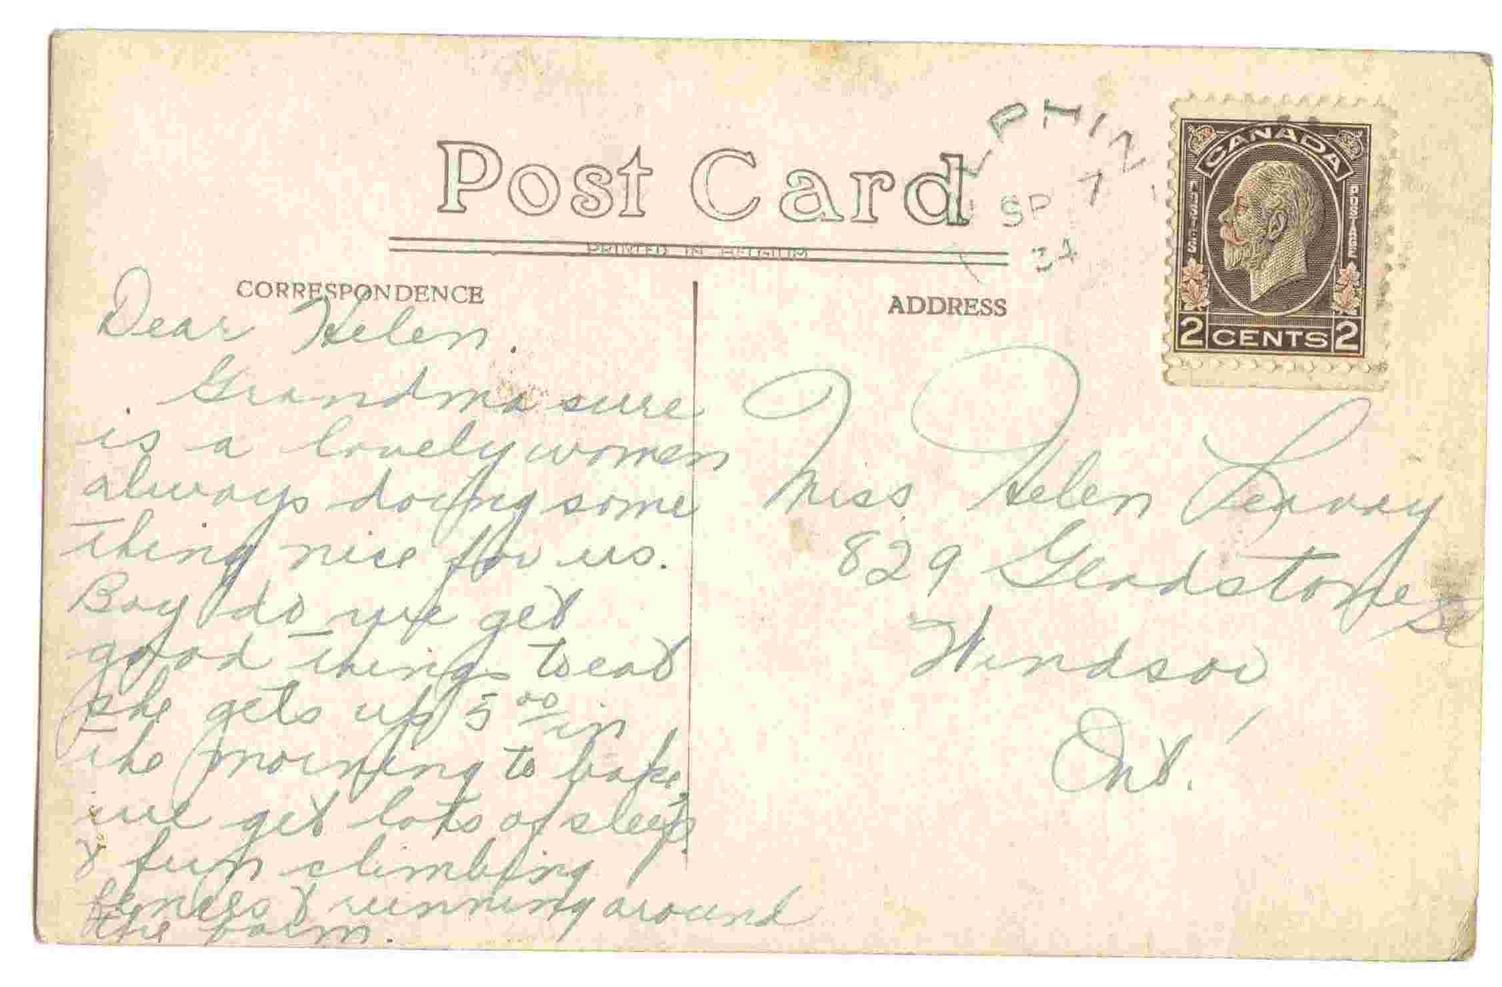 Post Card
PRINTED IN BELGIUM
CORRESPONDENCE
Dear Helen.
Grandma sure
is a lovely women
always doing some
thing nice for us.
Boy do we get
good things to eat
she gets up 5 00 in
the morning to bake,
we get lots of sleep
& fun climbing
fences & running around
the barn.
ADDRESS
Miss Helen
829 Gladstone
Windsor
Ont.
LPHIN
SP 7
34
CANADA
POSTES
POSTAGE
2 CENTS 2